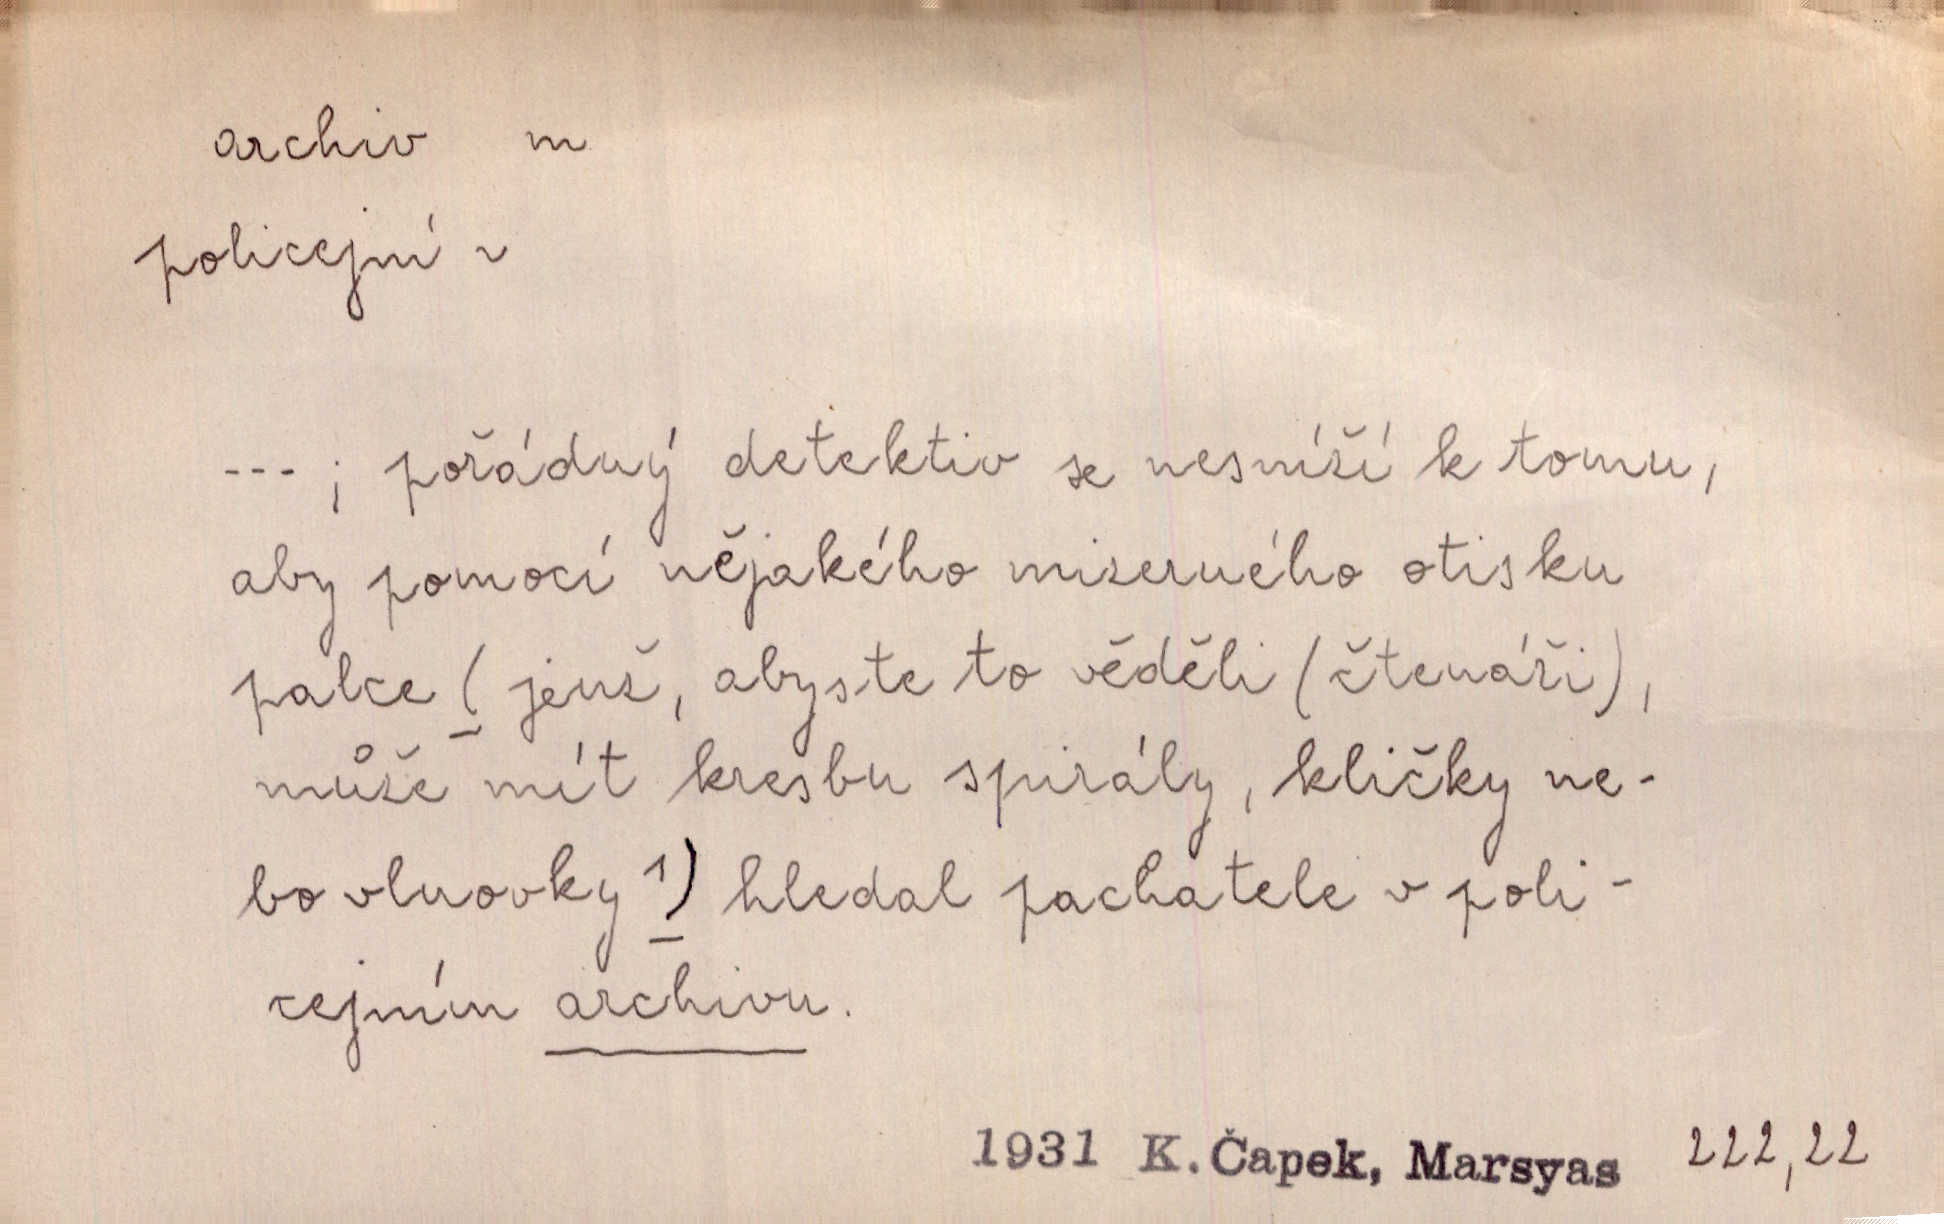 archiv m
policejní v
---; pořádný detektiv se nesníží k tomu,
aby pomocí nějakého miserného otisku
palce (jenž, abyste to věděli (čtenáři),
může mít kresbu spirály, kličky ne-
bo vlnovky 1) hledal pachatele v poli-
cejním archivu.
1931 K. Čapek, Marsyas 222,22